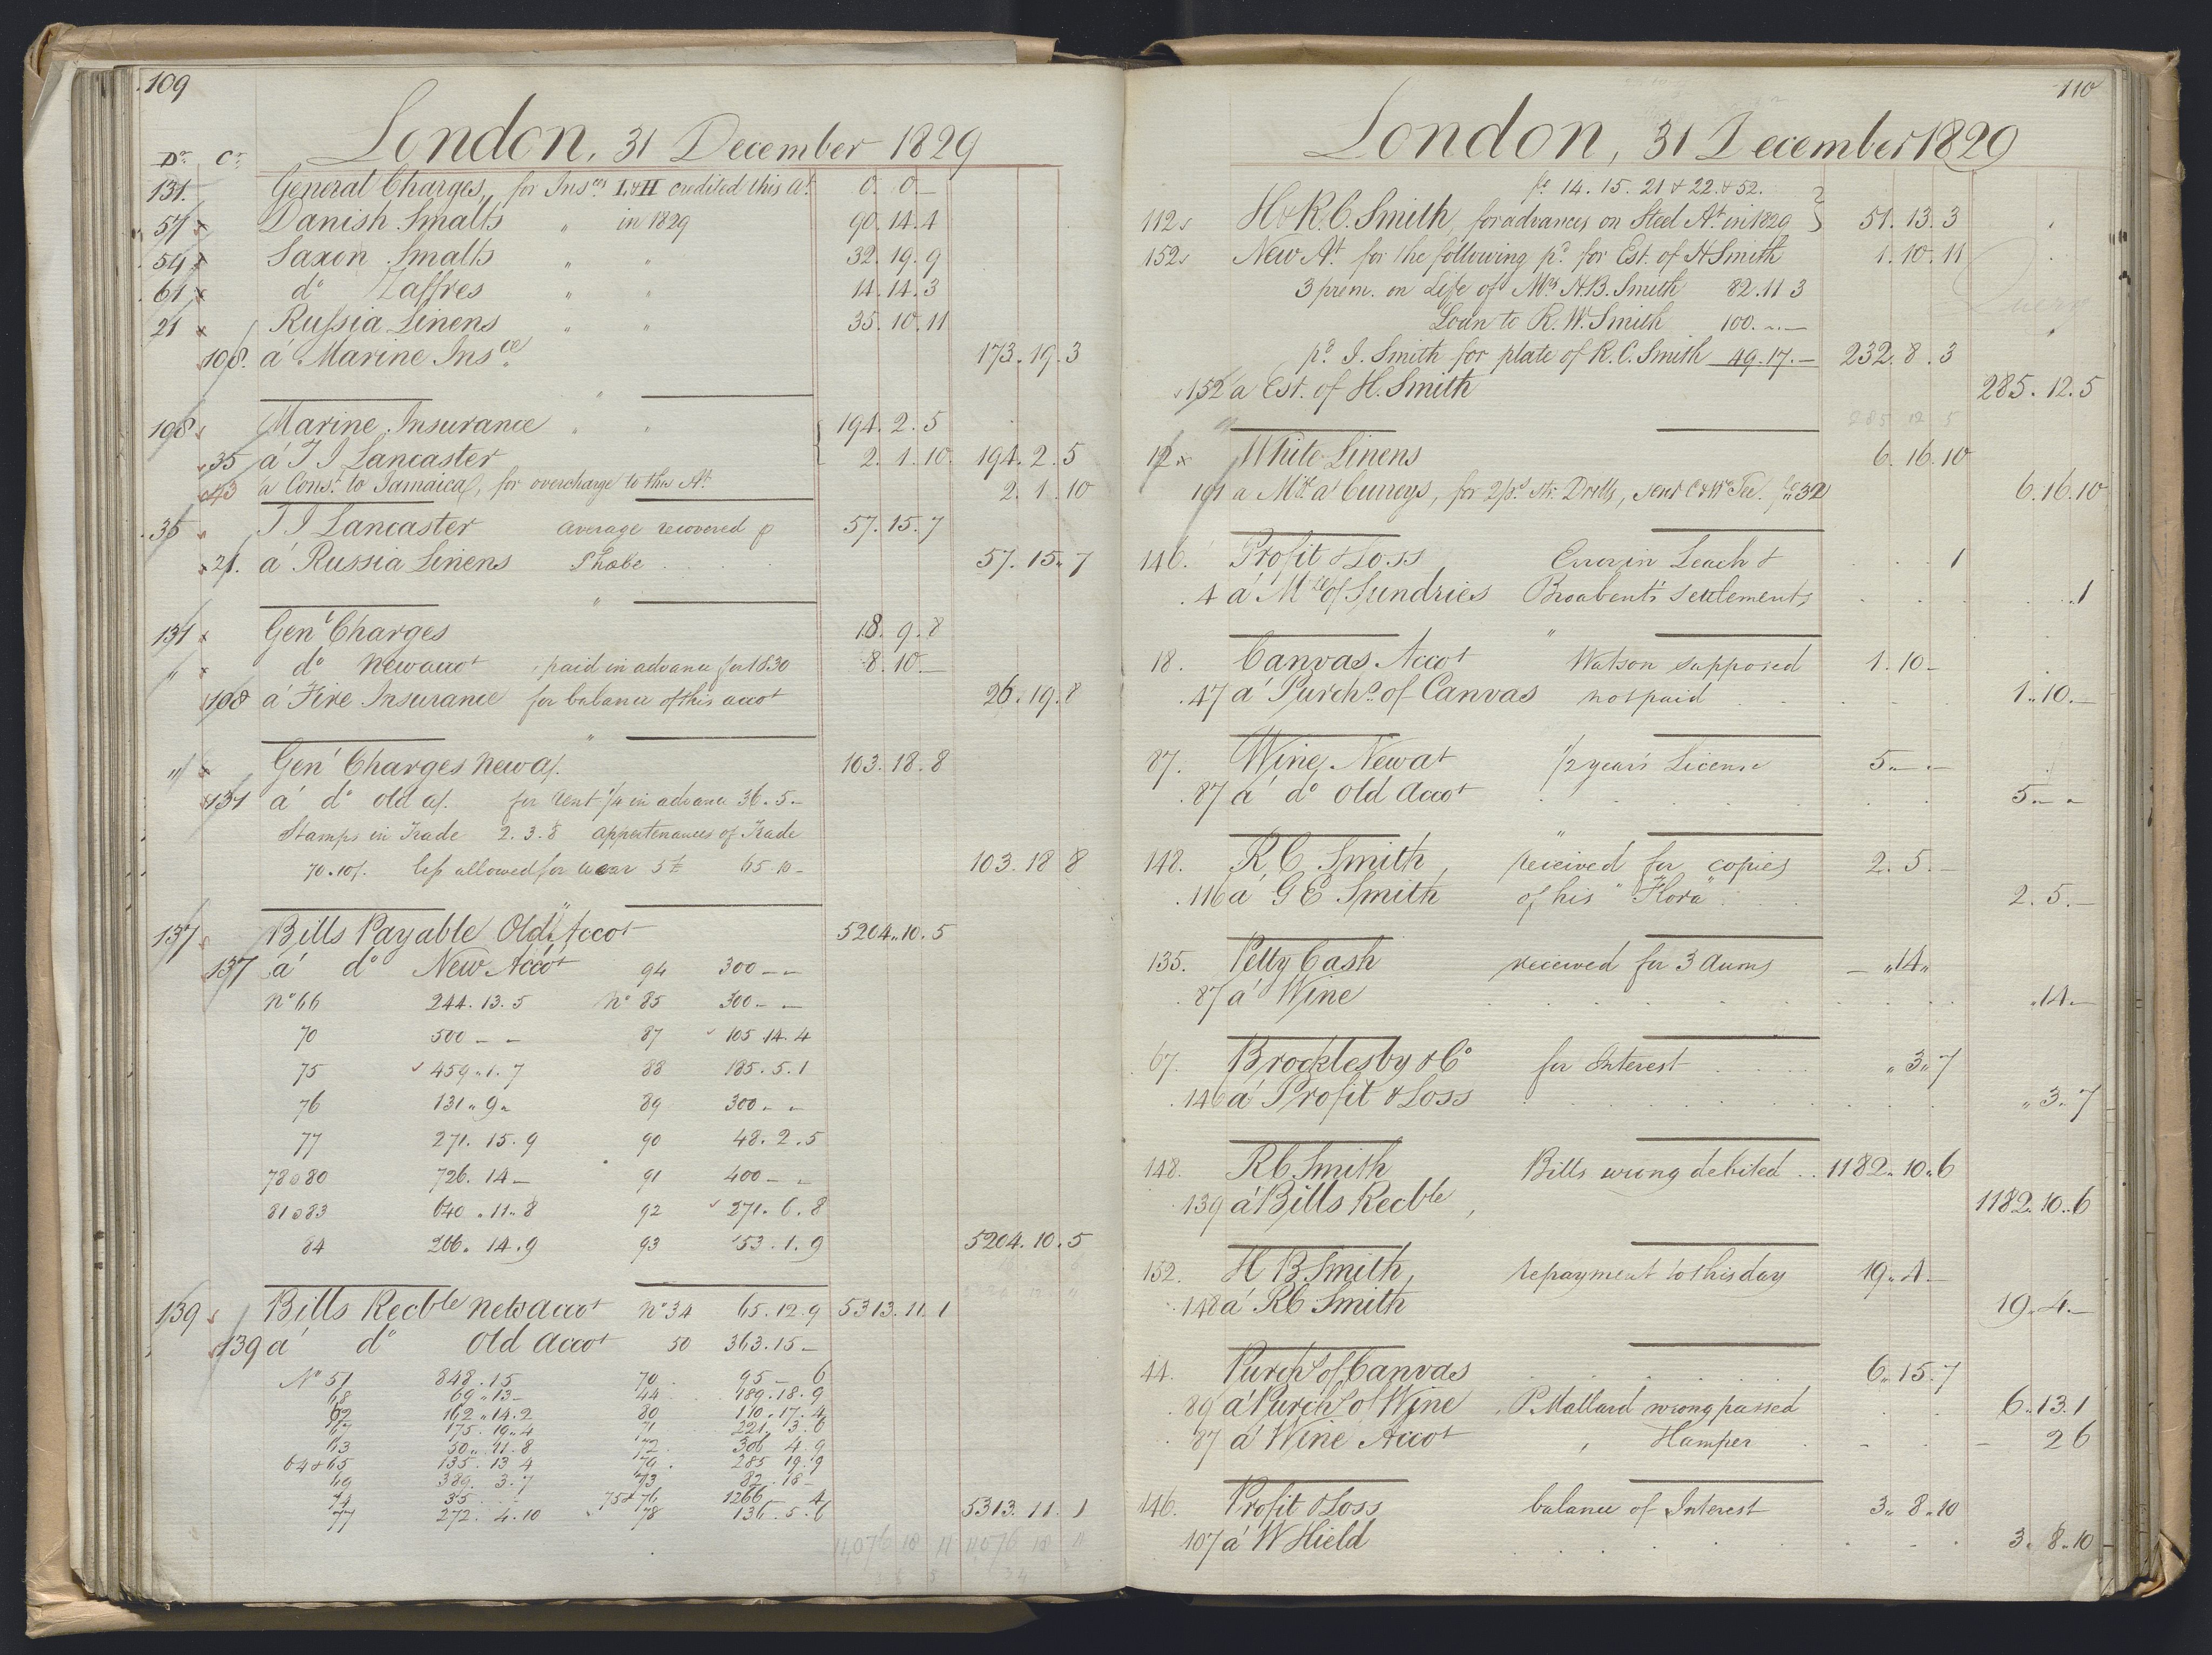 109
London, 31 December 1829
Dr. Cr.
131. General Charges, for Insces I & II credited this At. 0. 0.—
57 x Danish Smalts " in 1829 90. 14. 4
54 x Saxon Smalts " " 32. 19. 9
61 x do Zaffres " " 14. 14. 3
21 x Russia Linens " " 35. 10. 11
108. á Marine Insce. 173. 19. 3
108 Marine Insurance " " 194. 2. 5
35 á T I Lancaster 2. 1. 10. 194. 2. 5
43 a Const. to Jamaica, for overcharge to this At. 2. 1. 10
35 T I Lancaster average recovered p 57. 15. 7
21. á Russia Linens Phœbe 57. 15. 7
131 x Genl Charges 18. 9. 8
" x do New accot paid in advance for 1830 8. 10.—
108 á Fire Insurance for balance of this accot 26. 19. 8
" x Genl Charges new a/. 103. 18. 8
131 á do old a/. for Rent 1/4 in advance 36. 5.—
Stamps in Trade 2. 3. 8 appertenances of Trade
70. 10/. less allowed for wear 5£ 65. 10—
103. 18 8
137 Bills Payable Old Accot 5204. 10. 5
137 á do New Accot 94 300 — —
No 66 244. 13. 5 No 85 300 — —
70 500 — — 87 105 14. 4
75 459. 1. 7 88 185. 5. 1
76 131 " 9 " 89 300 — —
77 271. 15. 9 90 48. 2. 5
78 a 80 726. 14 — 91 400 — —
81 a 83 640 " 11 " 8 92 271. 6. 8
84 266. 14. 9 93 53. 1. 9 5204. 10. 5
139 Bills Recble new accot No 34 65. 12. 9 5313. 11. 1
139 á do Old Accot 50 363. 15 —
No 57 848. 15 70 95 — 6
68 69 " 13 — 44 189. 18. 9
62 162 " 14. 2 80 110. 17. 4
67 175. 19. 4 71 221. 3. 6
63 50. 11. 8 72. 306 4. 9
64 & 65 135. 13 4 79. 285 19. 9
69 389. 3. 7 73 82. 18 —
74 35 75 & 76 1266 — 4
77 272. 4. 10 78 136. 5. 6 5313. 11. 1
11,076 10 11 11,076 10 11
110
London, 31 December 1829
fo 14. 15. 21 & 22. & 52.
112 H & R. C. Smith, for advances on Steel At. in 1829 51. 13. 3
152 New At. for the following pd. for Est. of H Smith 1. 10. 11
3 prem. on Life of Mrs H. B. Smith 82. 11 3
Loan to R. W. Smith 100. — —
pd. I. Smith for plate of R. C. Smith 49. 17. — 232. 8. 3
152 a Est. of H. Smith 285. 12. 5
285 12 5
12 x White Linens 6. 16. 10
191 a Mse a/ Curreys, for 2 ps. Drills, fo 32 6. 16. 10
146. Profit & Loss Error in Leach & 1
4 á Mse of Sundries Broabent's settlements " 1
18. Canvas Accot Watson supposed 1. 10 —
47 á Purchs. of Canvas not paid 1. 10. —
87. Wine, New at 1/2 years License 5 — —
87 á do Old Accot 5 — —
148. R, C Smith, received for copies 2. 5. —
116 á G E Smith of his "Flora" 2. 5. —
135. Petty Cash received for 3 Aums — " 14 "
87 á Wine " 14. —
67. Brocklesby & Co for Interest " 3 " 7
146 á Profit & Loss " 3. 7
148. R C Smith Bills wrong debited 1182. 10. 6
139 á Bills Recble, 1182. 10. 6
152. H B Smith, repayment to this day 19. 4. —
148 á RC Smith 19. 4. —
44. Purchs of Canvas 6. 15. 7
89 á Purchs of Wine P. Mallard wrong passed 6. 13. 1
87 á Wine Accot , Hamper 2 6
146. Profit & Loss balance of Interest 3. 8. 10
107 á W Hield 3. 8. 10